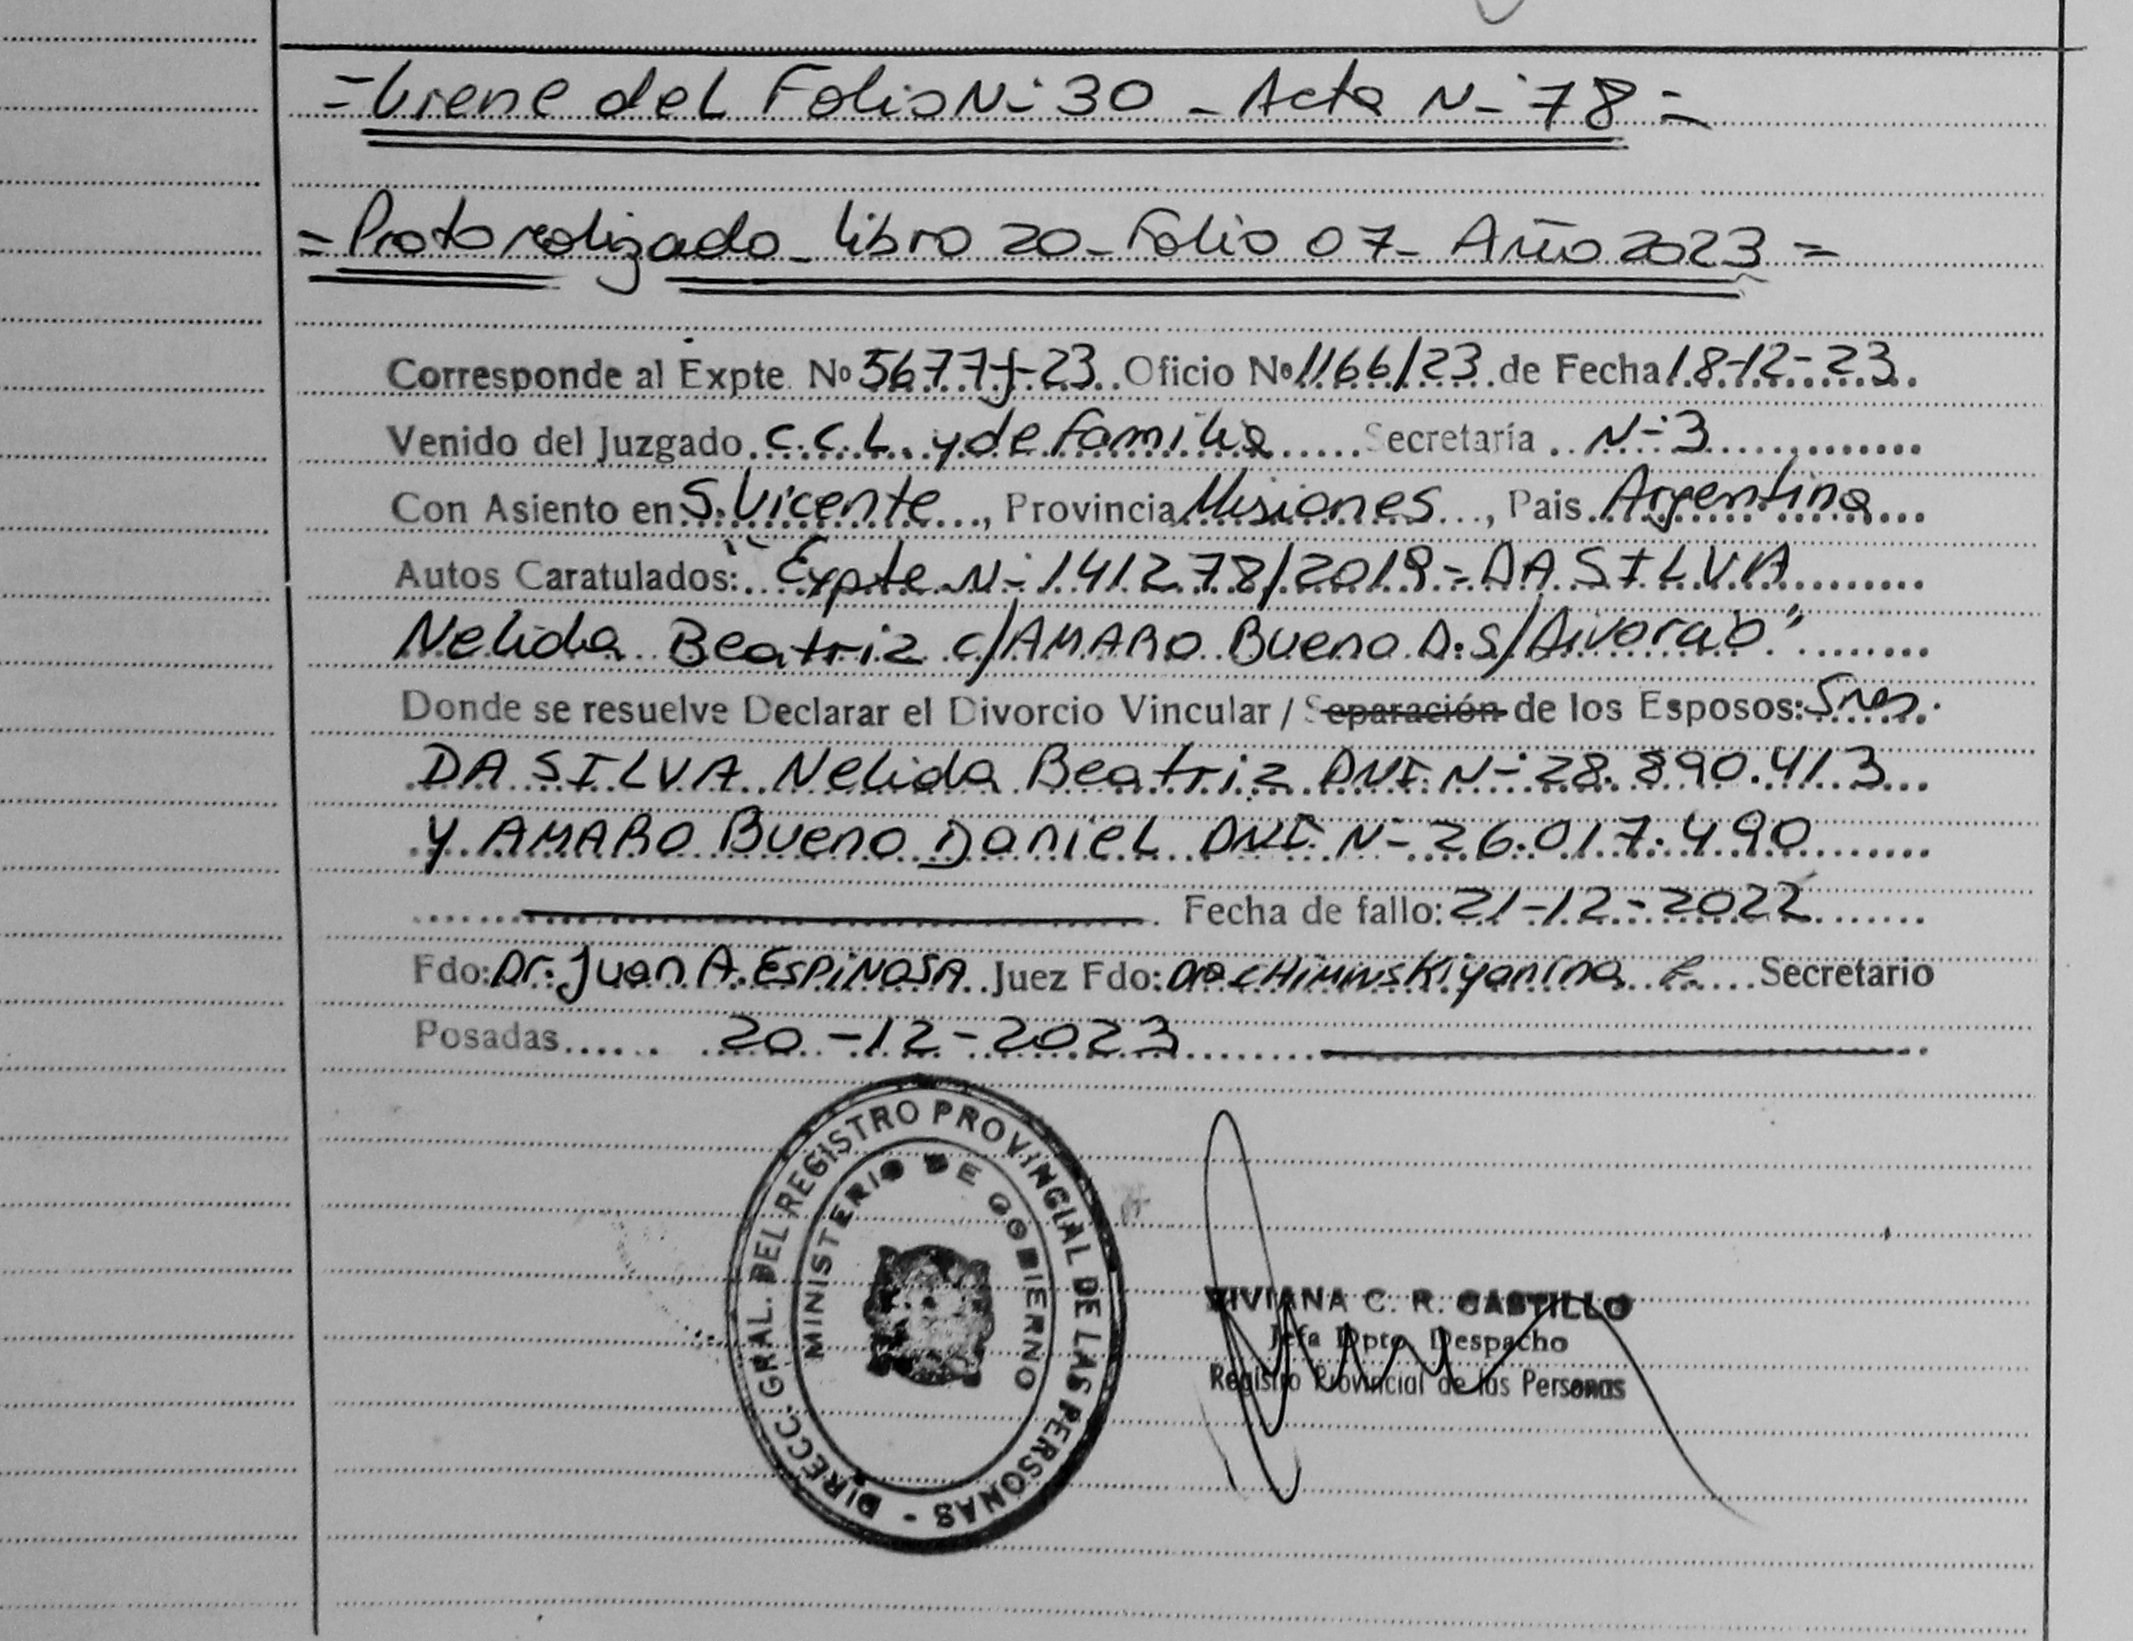 =Viene del Folio N- 30 - Acta N- 78=
=Protocolizado - libro 20 - Folio 07 - Año 2023=
Corresponde al Expte. Nº 5677-J-23 Oficio Nº 1166/23 de Fecha 18-12-23
Venido del Juzgado C.C.L. y de Familia Secretaría N- 3
Con Asiento en S. Vicente, Provincia Misiones, Pais Argentina
Autos Caratulados: "Expte N- 141278/2019 = DA SILVA
Nelida Beatriz c/AMARO Bueno D. S/Divorcio"
Donde se resuelve Declarar el Divorcio Vincular / Separación de los Esposos: Sres.
DA SILVA Nelida Beatriz DNI N- 28.890.413
y AMARO Bueno Daniel DNI N- 26.017.490
Fecha de fallo: 21-12-2022
Fdo: Dr. Juan A. ESPINOSA Juez Fdo: Dra CHIMINSKI yanina Secretario
Posadas 20-12-2023
DIRECC. GRAL. DEL REGISTRO PROVINCIAL DE LAS PERSONAS -
MINISTERIO DE GOBIERNO
VIVIANA C. R. CASTILLO
Jefa Dpto. Despacho
Registro Provincial de las Personas